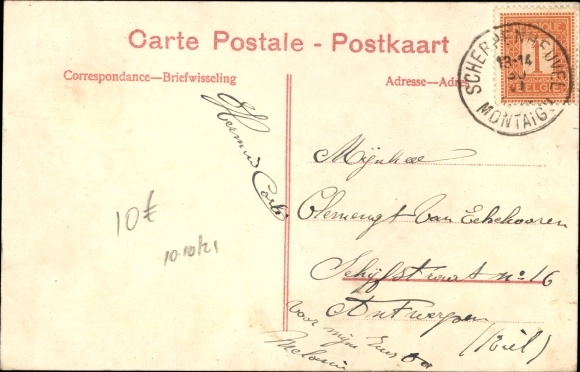 Carte Postale - Postkaart
Correspondance—Briefwisseling
Adresse—Adres
SCHERPENHEUVEL
13-14
MONTAIGU
1
BELGIË
10€
10.10/21
Mijnheer
Clemengt Van Eekhooren
Schijfstraat nº 16
Antwerpen
(Kiel)
voor mijn
Melanie